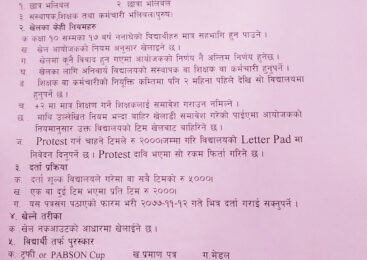 १. छात्र भलिबल   २ छात्रा भलिबल
३ संस्थापक,शिक्षक तथा कर्मचारी भलिबल(पुरुष)
२. खेलका केही नियमहरु
क कक्षा १० सम्मका १७ वर्ष ननाघेको विद्यार्थीहरु मात्र सहभागि हुन पाउने ।
ख खेल आयोजकको नियम अनुसार खेलाईने छ ।
ग खेलमा कुनै विवाद हुन गएमा आयोजकको निर्णय नै अन्तिम निर्णय हुनेछ ।
घ खेलका लागि अनिवार्य विद्यालयको संस्थापक वा शिक्षक वा कर्मचारी हुनुपर्ने ।
ङ शिक्षक वा कर्मचारीको नियुक्ति कम्तिमा पनि २ महिना पहिले देखि सो विद्यालयमा
हुनुपर्ने छ ।
च. +२ मा मात्र शिक्षण गर्ने शिक्षकलाई समावेश गराउन नमिल्ने ।
छ. माथि उल्लेखित नियम भन्दा बाहिर खेलाडी समावेश गरेको पाईएमा आयोजकको
नियमानुसार उक्त विद्यालयको टिम खेलबाट बाहिरिने छ ।
ज. Protest गर्न चाहने टिमले रु २०००।जम्मा गरि विद्यालयको Letter Pad मा
निवेदन दिनुपर्ने छ । Protest दावि भएमा सो रकम फिर्ता गरिने छ ।
३. दर्ता प्रकिया
क. दर्ता शूल्क विद्यालयले गरेमा वा सबै टिमको रु ५०००।
ख. एक वा दुई टिम भएमा प्रति टिम रु २०००।
ग. यस पत्रसंग पठाएको फारम भरी २०७७-११-१२ गते भित्र दर्ता गराई सक्नुपर्ने ।
४. खेल्ने तरीका
क. खेल नकआउटको आधारमा खेलाईने छ ।
५. विद्यार्थी तर्फ पुरस्कार
क. ट्रफी or PABSON Cup   ख.प्रमाण पत्र   ग.मेडल